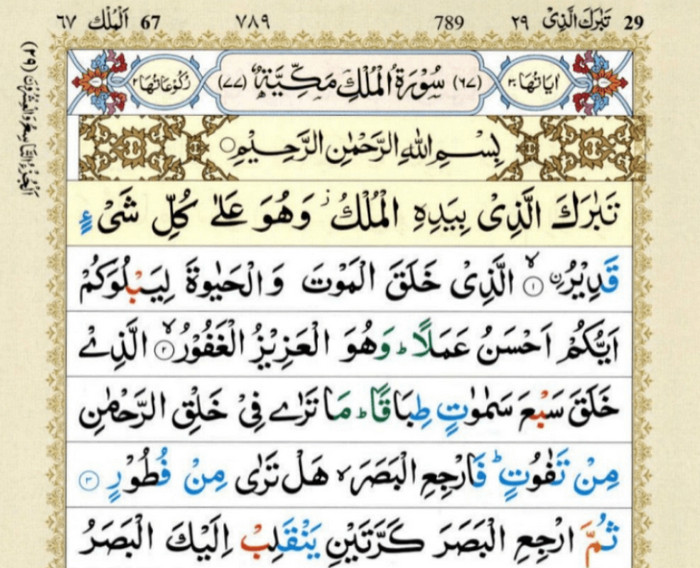 29 تَبٰرَكَ الَّذِىْ ٢٩ 789 ٧٨٩ 67 اَلْمُلْك ٦٧
اٰيَاتُهَا ٣٠ (٦٧) سُوْرَةُ الْمُلْكِ مَكِّيَّةٌ (٧٧) رُكُوْعَاتُهَا ٢
بِسْمِ اللّٰهِ الرَّحْمٰنِ الرَّحِيْمِ
تَبٰرَكَ الَّذِىْ بِيَدِهِ الْمُلْكُ ز وَهُوَ عَلٰى كُلِّ شَىْءٍ
قَدِيْرُ ۨ ۙ ١ الَّذِىْ خَلَقَ الْمَوْتَ وَ الْحَيٰوةَ لِيَبْلُوَكُمْ
اَيُّكُمْ اَحْسَنُ عَمَلًا ؕ وَهُوَ الْعَزِيْزُ الْغَفُوْرُ ۙ ٢ الَّذِىْ
خَلَقَ سَبْعَ سَمٰوٰتٍ طِبَاقًا ؕ مَا تَرٰى فِىْ خَلْقِ الرَّحْمٰنِ
مِنْ تَفٰوُتٍ ؕ فَارْجِعِ الْبَصَرَ ۙ هَلْ تَرٰى مِنْ فُطُوْرٍ ٣
ثُمَّ ارْجِعِ الْبَصَرَ كَرَّتَيْنِ يَنْقَلِبْ اِلَيْكَ الْبَصَرُ
اَلْجُزْءُ التَّاسِعُ وَالْعِشْرُوْنَ (٢٩)